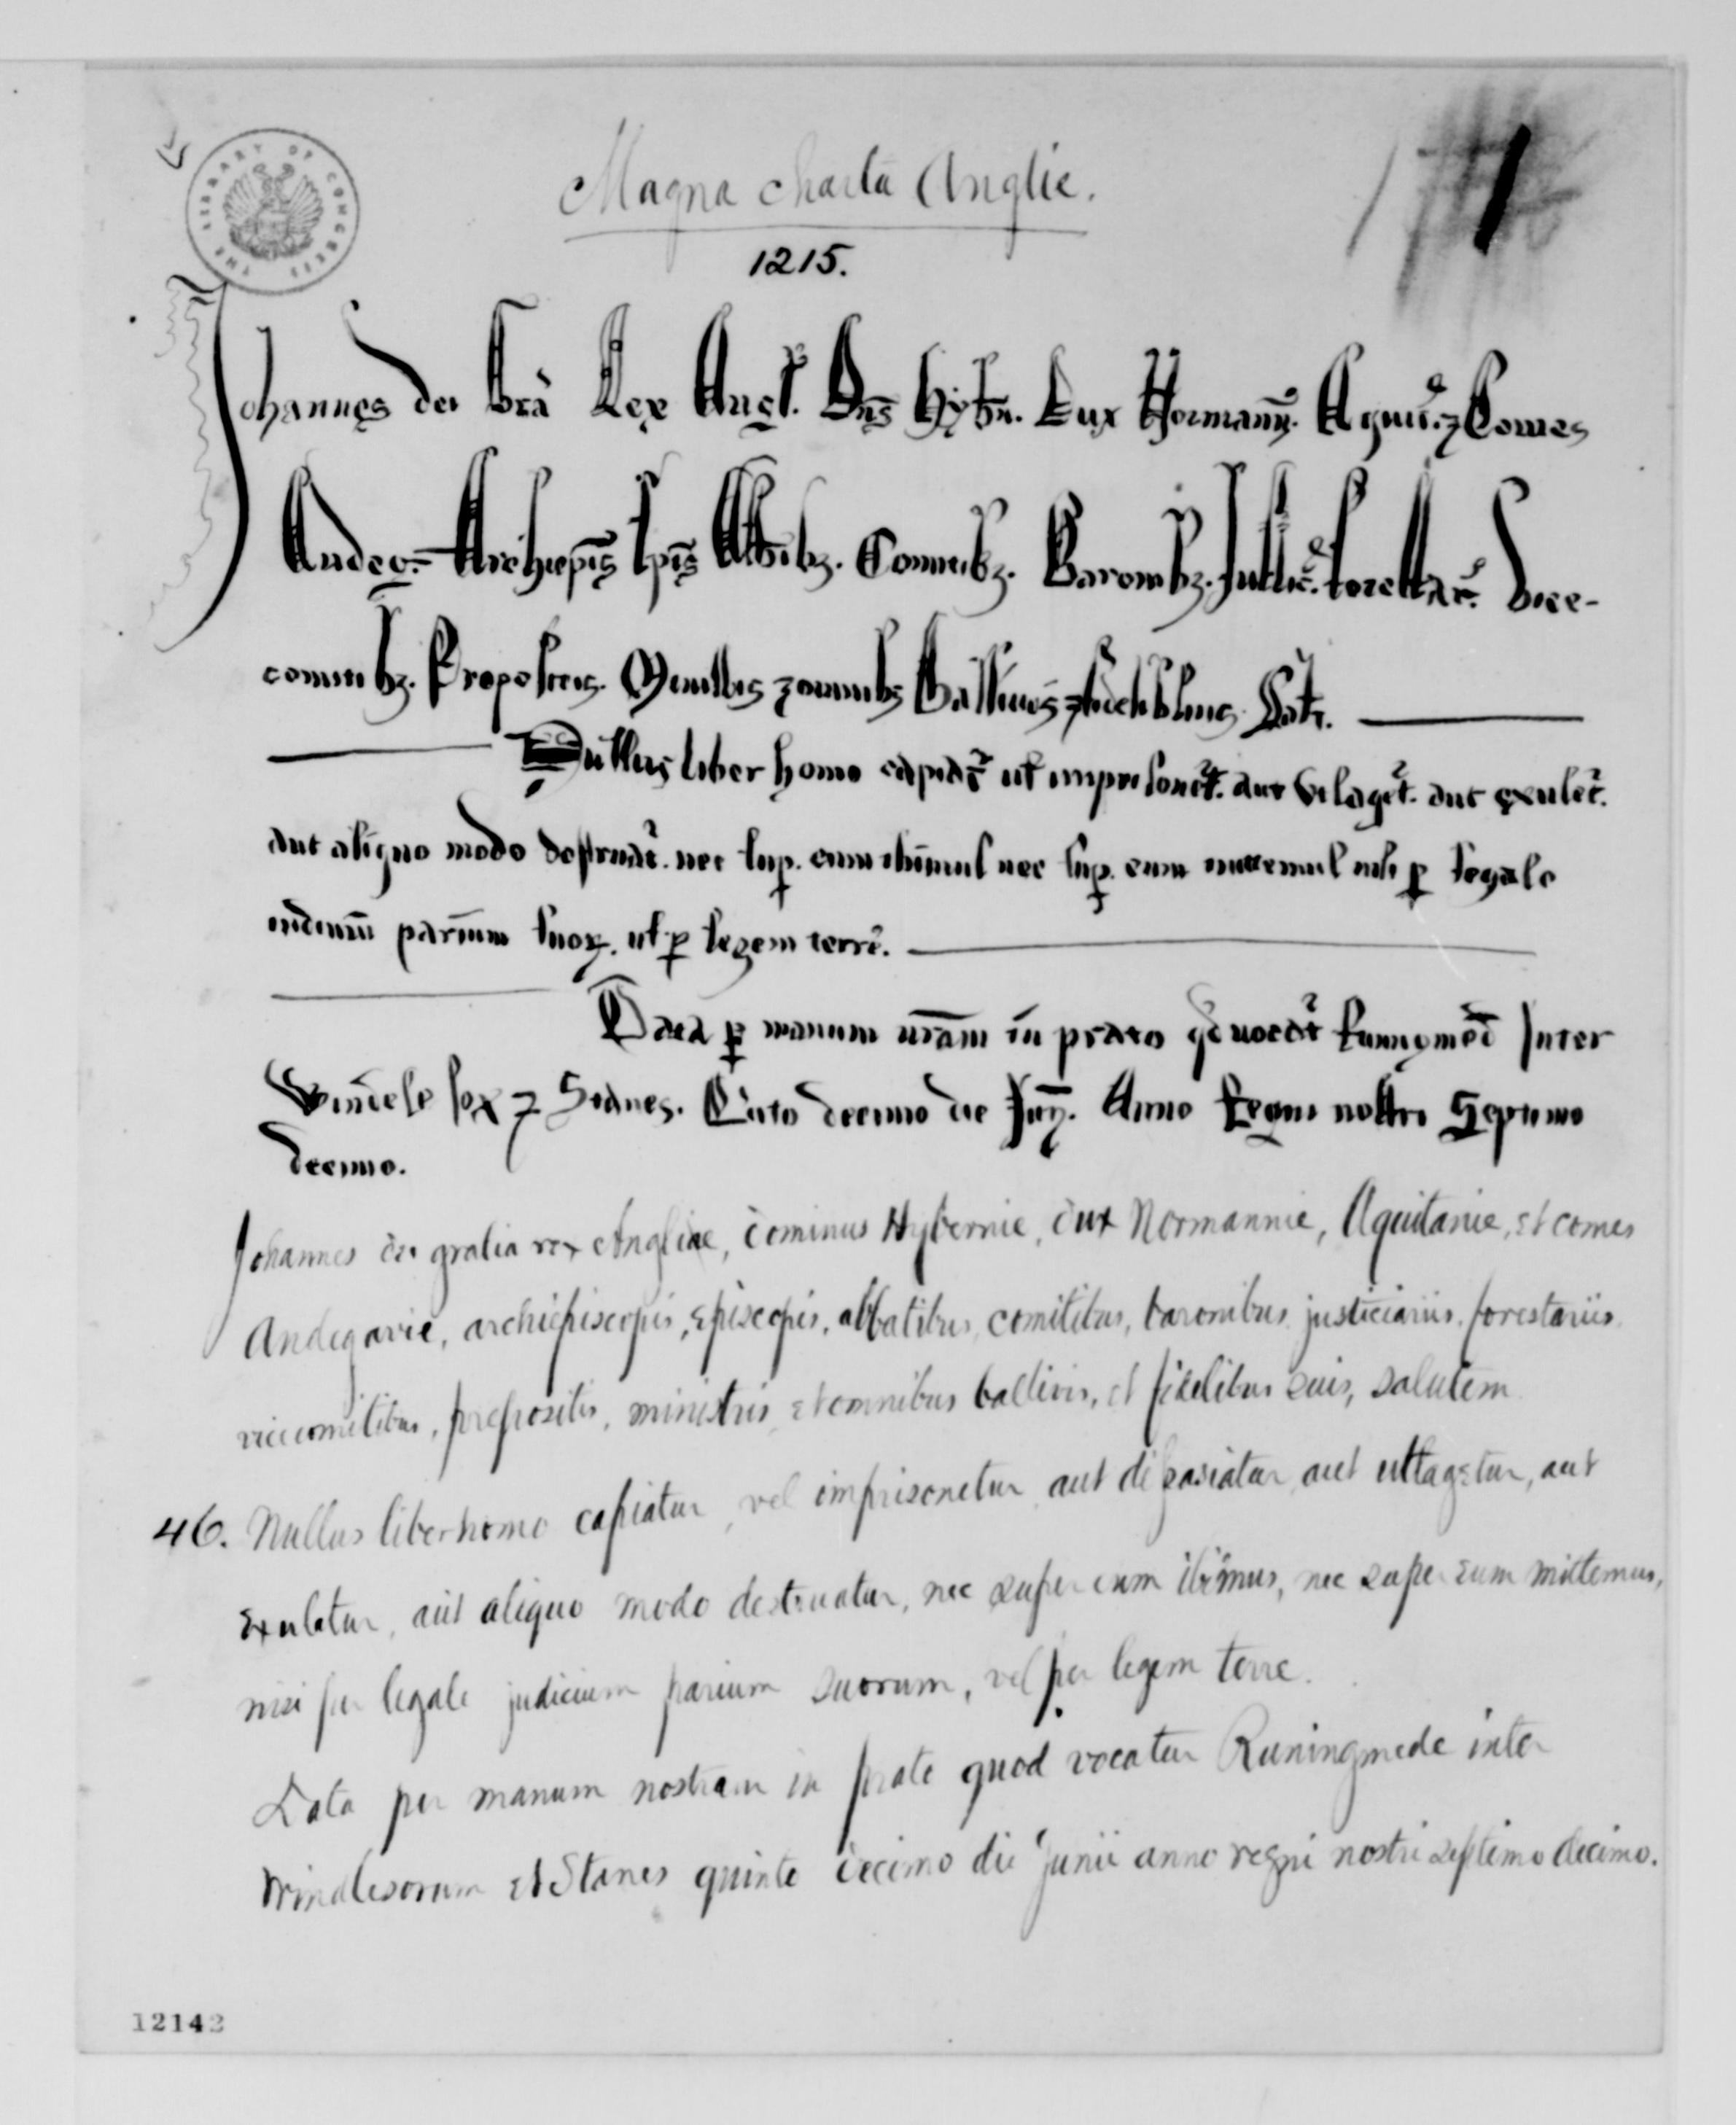 Magna Charta Anglie.
1215.
THE LIBRARY OF CONGRESS
1
Johannes dei Gra Rex Angl. Dns Hybn. Dux Normann. Aquit. ⁊ Comes
Andeg. Archiepis Epis Abbibz. Comitibz. Baronibz. Justic. Forestar. Vice-
comitibz. Prepositis. Ministris ⁊ omnibz Ballivis ⁊ fidelibus Salt.
Nullus liber homo capiat ut imprisonet. aut Utlaget. aut exulet.
aut aliquo modo destruat. nec sup. eum ibimus nec sup. eum mittemus nisi p legale
iudiciu parium suoz. ut p legem terre.
Data p manum nram in prato qd vocat Runnymed Inter
Windelesox ⁊ Stanes. Quito decimo die Jun. Anno Regni nostri Septimo
decimo.
Johannes dei gratia rex Angliae, dominus Hybernie, dux Normannie, Aquitanie, et comes
Andegavie, archiepiscopis, episcopis, abbatibus, comitibus, baronibus justiciariis, forestariis,
vicecomitibus, prepositis, ministris et omnibus ballivis, et fidelibus suis, salutem
46. Nullus liber homo capiatur, vel imprisonetur aut dissasiatur aut utlagetur, aut
exuletur, aut aliquo modo destruatur, nec super eum ibimus, nec super eum mittemus,
nisi per legale judicium parium suorum, vel per legem terre.
Data per manum nostram in prato quod vocatur Runingmede inter
Windlesorum et Stanes quinto decimo die Junii anno regni nostri septimo decimo.
12142